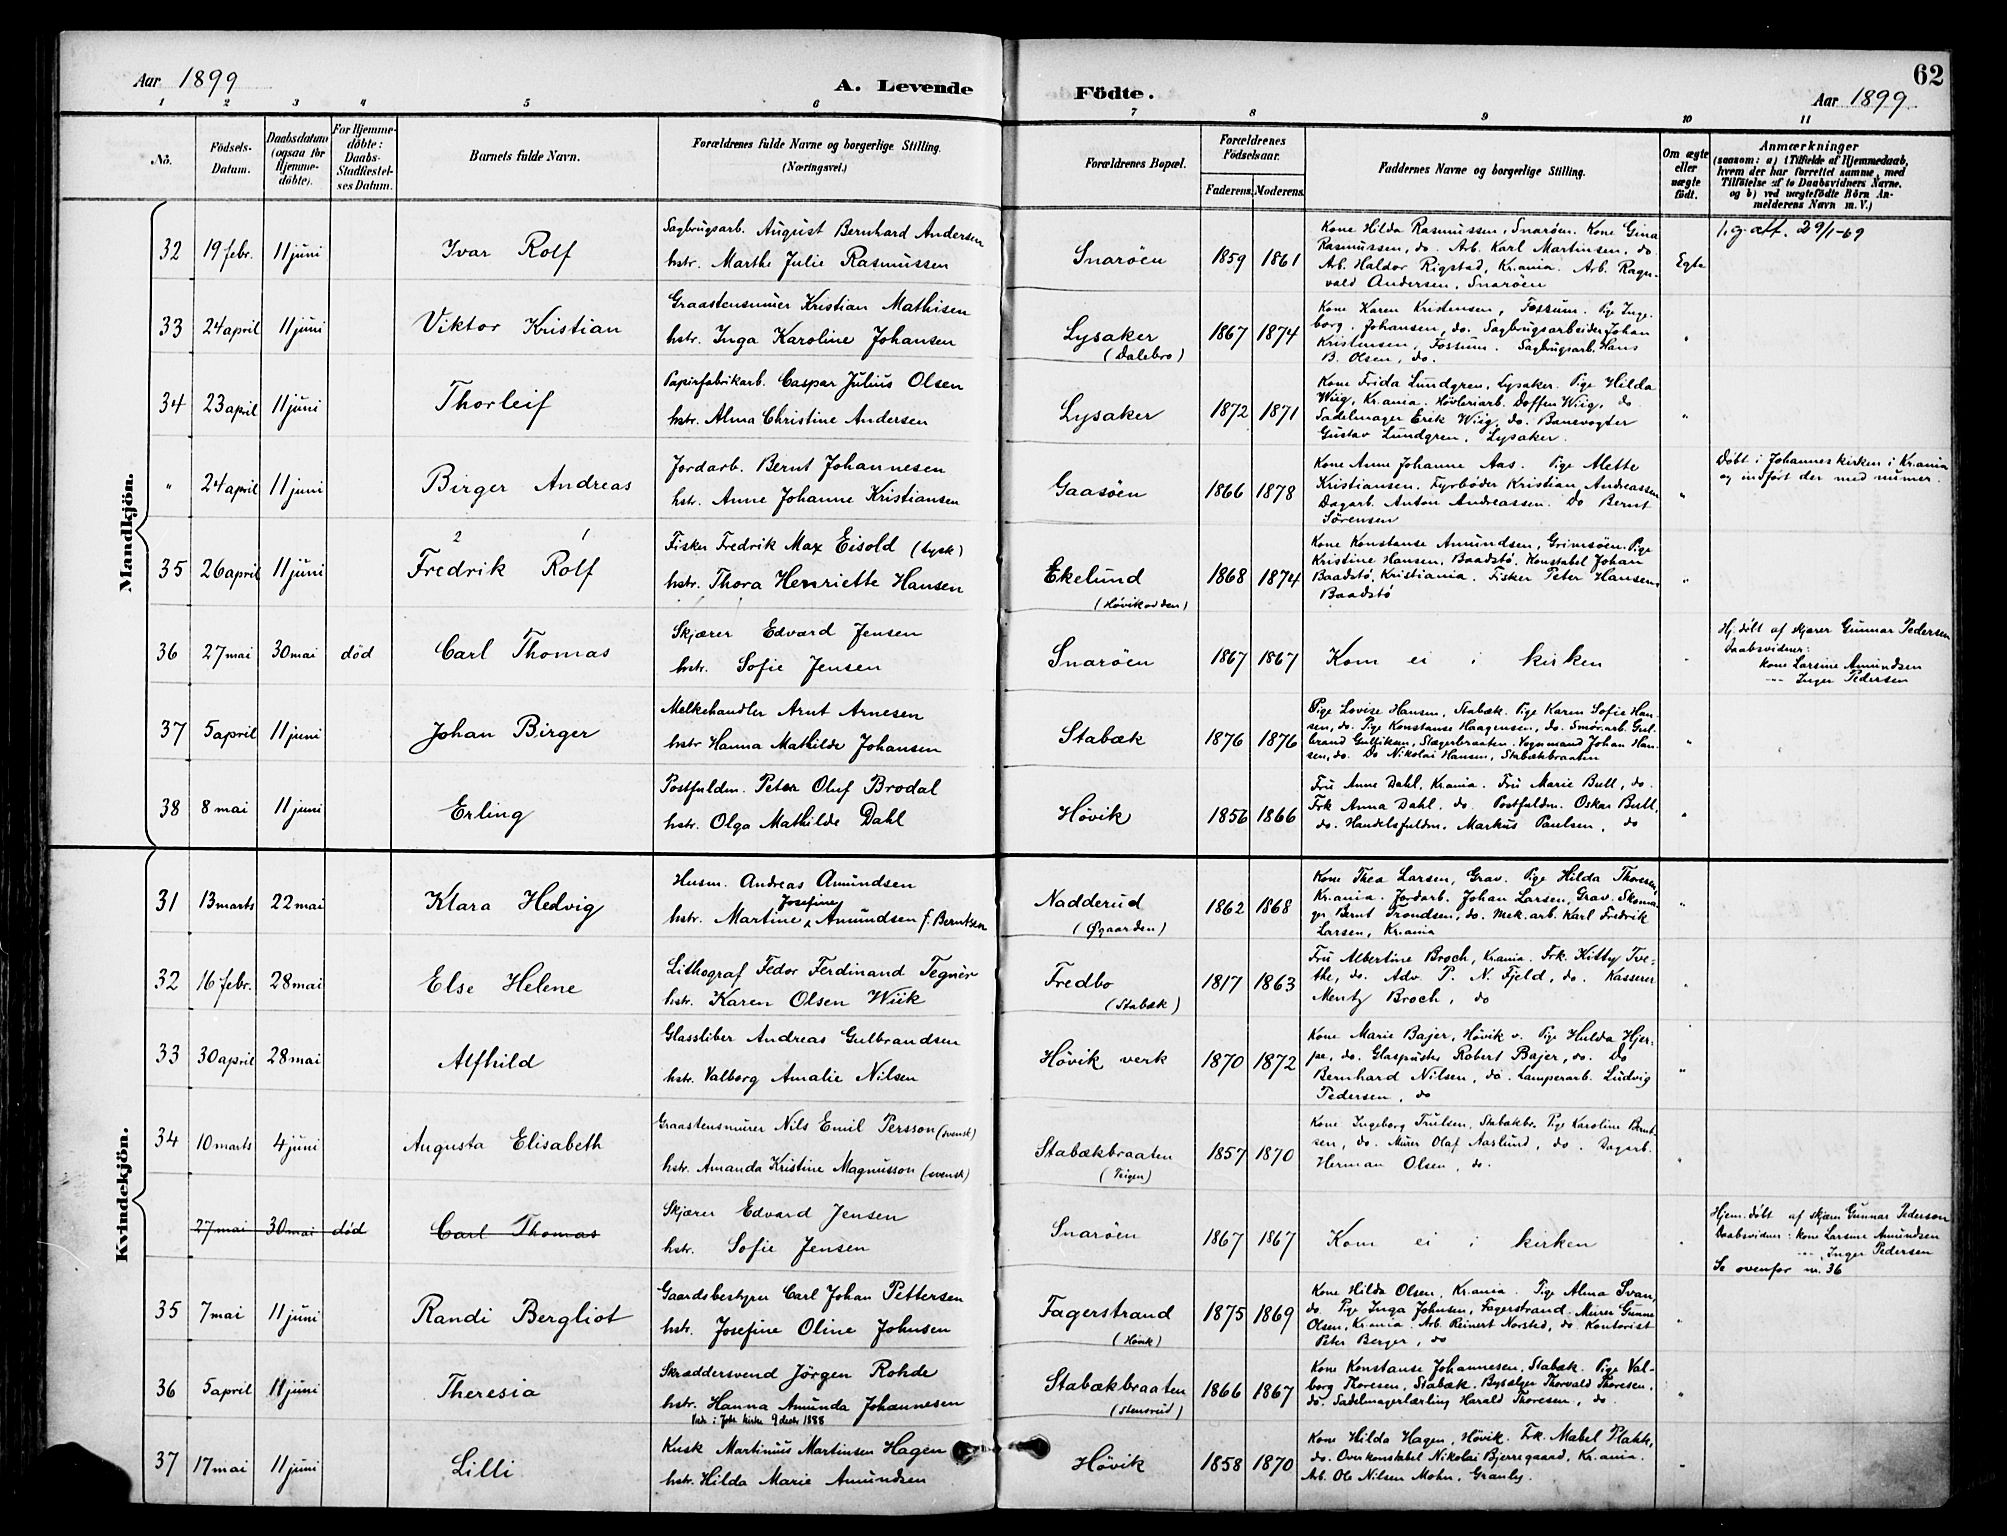 Aar 1899
A. Levende
Födte.
Aar 1899
62
1 2 3 4 5 6 7 8 9 10 11
No.
Födsels-
Datum.
Daabsdatum
(ogsaa for
Hjemme-
döbte).
For Hjemme-
döbte:
Daabs-
Stadfæstel-
ses Datum.
Barnets fulde Navn.
Forældrenes fulde Navne og borgerlige Stilling.
(Næringsvei.)
Forældrenes Bopæl.
Forældrenes
Födselsaar.
Faderens. Moderens.
Faddernes Navne og borgerlige Stilling.
Om ægte
eller
uægte
födt.
Anmærkninger
(saasom: a) i Tilfælde af Hjemmedaab,
hvem der har forrettet samme, med
Tilföielse af to Daabsvidners Navne.
og b) ved uægtefödte Börn An-
melderens Navn m. V.)
Mandkjön.
32 19 febr. 11 juni Ivar Rolf
Sagbrugsarb. August Bernhard Andersen
hstr. Marthe Julie Rasmussen
Snarøen 1859 1861
Kone Hilda Rasmussen, Snarøen. Kone Gina
Rasmussen, do. Arb. Karl Martinsen, do.
Arb. Haldor Rigstad, Kr.ania. Arb. Ragn-
vald Andersen, Snarøen
Egte
1.g. att. 29/1-69
33 24 april 11 juni Viktor Kristian
Graastensmurer Kristian Mathisen
hstr. Inga Karoline Johansen
Lysaker
(Dalebro)
1867 1874
Kone Karen Kristensen, Fossum. Pige Inge-
borg Johansen, do. Sagbrugsarbeider Johan
Kristensen, Fossum. Sagbrugsarb. Hans
B. Olsen, do.
"
34 23 april 11 juni Thorleif
Papirfabrikarb. Caspar Julius Olsen
hstr. Alma Christine Andersen
Lysaker 1872 1871
Kone Frida Lundgren, Lysaker. Pige Hilda
Wiig, Kr.ania. Høvleriarb. Doffen Wiig, do.
Sadelmager Erik Wiig, do. Banevogter
Gustav Lundgren, Lysaker.
"
" 24 april 11 juni Birger Andreas
Jordarb. Bernt Johannesen
hstr. Anne Johanne Kristiansen
Gaasøen 1866 1878
Kone Anne Johanne Aas. Pige Mette
Kristiansen. Fyrbøder Kristian Andreassen
Dagarb. Anton Andreassen. Do Bernt
Sørensen
"
Døbt i Johanneskirken i Kr.ania
og indført der med numer.
35 26 april 11 juni
2 1
Fredrik Rolf
Fisker Fredrik Max Eisold (tysk)
hstr. Thora Henriette Hansen
Ekelund
(Høvikodden)
1868 1874
Kone Konstanse Amundsen, Grimsøen. Pige
Kristine Hansen, Baadstø, Konstabel Johan
Baadstø, Kristiania. Fisker Peter Hansen,
Baadstø
"
36 27 mai 30 mai død Carl Thomas
Skjærer Edvard Jensen
hstr. Sofie Jensen
Snarøen 1867 1867
Kom ei i kirken
"
Hj.døbt af skjærer Gunnar Pedersen
Daabsvidner:
kone Larsine Amundsen
--- Inger Pedersen
37 5 april 11 juni Johan Birger
Melkehandler Arnt Arnesen
hstr Hanna Mathilde Johansen
Stabæk 1876 1876
Pige Lovise Hansen, Stabæk. Pige Karen Sofie Han-
sen, do. Pige Konstanse Haagensen, do. Smørarb. Gul-
brand Gulliksen, Vognmand Johan Han-
sen, do. Do Nikolai Hansen, Stabækbraaten
"
38 8 mai 11 juni Erling
Postfuldm. Peter Oluf Brodal
hstr. Olga Mathilde Dahl
Høvik 1856 1866
Fru Anne Dahl, Kr.ania. Fru Marie Bull, do.
Frk Anna Dahl, do. Postfuldm. Oskar Bull,
do. Handelsfuldm. Markus Paulsen, do
"
Kvindekjön.
31 13 marts 22 mai Klara Hedvig
Husm. Andreas Amundsen
Josefine
hstr. Martine Amundsen f. Berntsen
Nadderud
(Øgaarden)
1862 1868
Kone Thea Larsen, Grav. Pige Hilda Thoresen,
Kr.ania. Jordarb. Johan Larsen, Grav. Skoma-
ger Bernt Trondsen, do. Mek.arb. Karl Fredrik
Larsen, Kr.ania
"
32 16 febr. 28 mai Else Helene
Lithograf Fedor Ferdinand Tegnér
hstr. Karen Olsen Wiik
Fredbo
(Stabæk)
1817 1863
Fru Albertine Broch, Kr.ania. Frk. Kitty Tve-
the, do. Adv. P. N. Fjeld, do. Kasserer
Mentz Broch, do
"
33 30 april 28 mai Alfhild
Glassliber Andreas Gulbrandsen
hstr. Valborg Amalie Nilsen
Høvik verk 1870 1872
Kone Marie Bajer, Høvik v. Pige Hulda Hjer-
pe, do. Glaspuster Robert Bajer, do. Do
Bernhard Nilsen, do. Lamperarb. Ludvig
Pedersen, do
"
34 10 marts 4 juni Augusta Elisabeth
Graastensmurer Nils Emil Persson (svensk)
hstr. Amanda Kristine Magnusson (svensk)
Stabækbraaten
(Teigen)
1857 1870
Kone Ingeborg Trulsen, Stabækbr. Pige Karoline Bernt-
sen, do. Murer Olaf Aaslund, do. Dagarb.
Herman Olsen, do.
"
27 mai 30 mai død Carl Thomas
Skjærer Edvard Jensen
hstr. Sofie Jensen
Snarøen 1867 1867
Kom ei i kirken
"
Hjem.døbt af skjærer Gunnar Pedersen
Daabsvidner: kone Larsine Amundsen
--- Inger Pedersen
Se ovenfor nr. 36
35 7 mai 11 juni Randi Bergliot
Gaardsbestyrer Carl Johan Pettersen
hstr. Josefine Oline Johnsen
Fagerstrand
(Høvik)
1875 1869
Kone Hilda Olsen, Kr.ania. Pige Alma Svan,
do. Pige Inga Johnsen, Fagerstrand. Murer Gunne
Olsen, Kr.ania. Arb. Reinert Norsted, do. Kontorist
Peter Berger, do
"
36 5 april 11 juni Theresia
Skræddersvend Jörgen Rohde
hstr. Hanna Amunda Johannesen
Viede i Joh. kirke 9 decbr 1888
Stabækbraaten
(Stensrud)
1866 1867
Kone Konstanse Johannesen, Stabæk. Pige Val-
borg Thoresen, Stabæk. Bysælger Thorvald Thoresen,
do. Sadelmagerlærling Harald Thoresen, do
"
37 17 mai 11 juni Lilli
Kusk Martinius Martinsen Hagen
hstr. Hilda Marie Amundsen
Høvik 1858 1870
Kone Hilda Hagen, Høvik. Frk. Mabel Plahk,
do. Overkonstabel Nikolai Bjerregaard, Kr.ania.
Arb. Ole Nilsen Mohn, Granly.
"